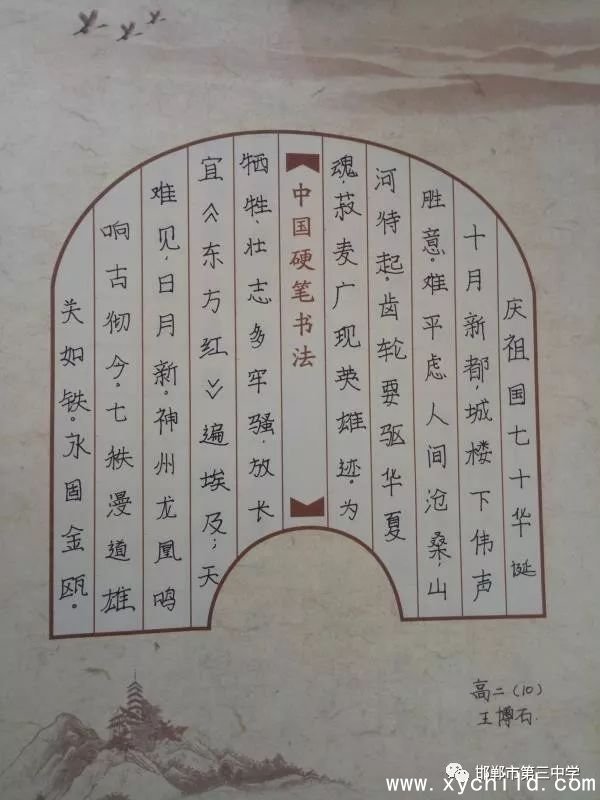 庆祖国七十华诞
十月新都，城楼下伟声
胜意。难平虑人间沧桑，山
河待起。齿轮要驱华夏
魂，菽麦广现英雄迹。为
中国硬笔书法
牺牲，壮志多牢骚，放长
宜《东方红》遍埃及；天
难见，日月新。神州龙凰鸣
响古彻今。七秩漫道雄
关如铁。永固金瓯。
高二（10）
王博石
邯郸市第三中学
www.xychild.com